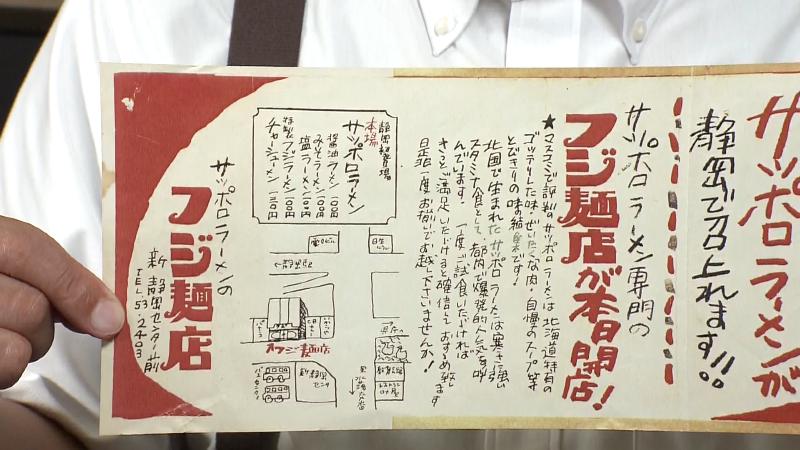 サッポロラーメンが
静岡で召上れます!!
サッポロラーメン専門の
フジ麺店が本日開店!
★マスコミで評判のサッポロラーメンは北海道特有の
ゴッテリした味・ぜいたくな肉・自慢のスープ等
とびきりの味の結集です!
北国で生まれたサッポロラーメンは寒さに強い
スタミナ食として、都内で爆発的人気を呼
んでいます。一度ご試食いただければ
きっとご満足いただけると確信しておすすめ致します
是非一度お揃いでお越し下さいませんか!
静岡初登場
本場
サッポロラーメン
醤油ラーメン 一〇〇円
みそラーメン 一〇〇円
塩ラーメン 一〇〇円
特製フジラーメン 一五〇円
チャーシューメン 一五〇円
電々ビル
日生
←静岡駅
フジ麺店
新静岡センター
バスセンター
サッポロラーメンの
フジ麺店
新静岡センター前
TEL 53・2403